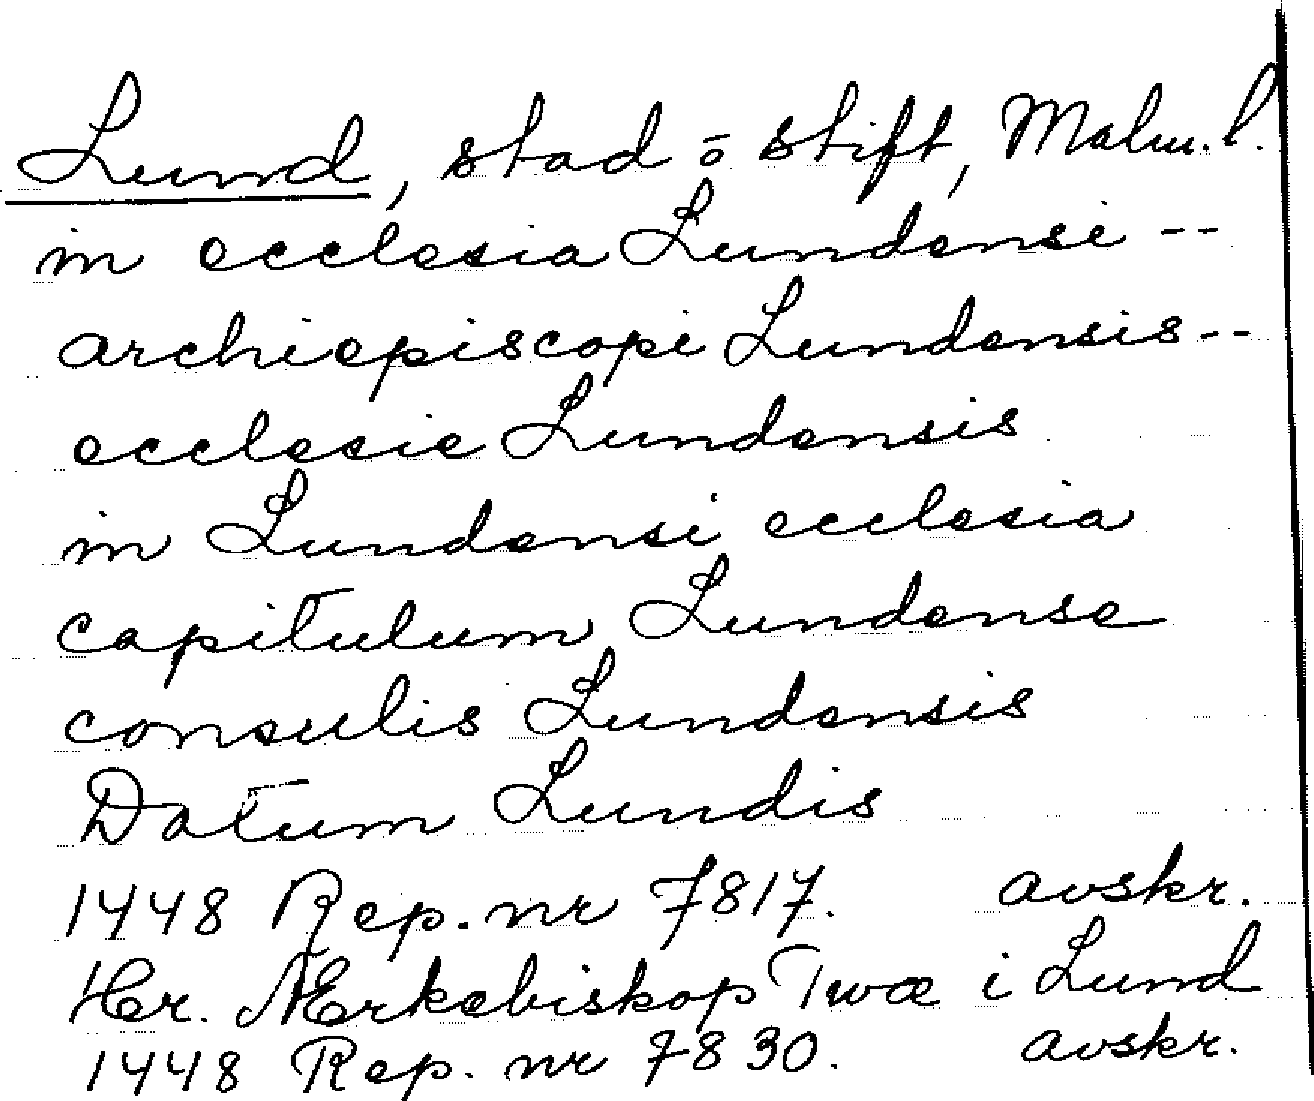 Lund, stad o stift, Malm. l.
in ecclesia Lundensi --
archiepiscopi Lundensis --
ecclesie Lundensis
in Lundensi ecclesia
capitulum Lundense
consulis Lundensis
Datum Lundis
1448 Rep. nr 7817. avskr.
Her. Ærkebiskop Twæ i Lund
1448 Rep. nr 7830. avskr.